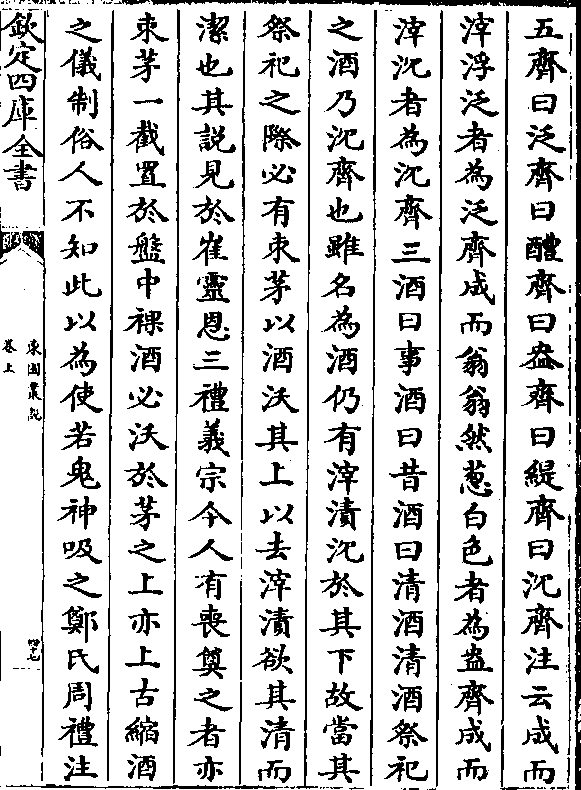 五齊曰泛齊曰醴齊曰盎齊曰緹齊曰沉齊注云成而
滓浮泛者為泛齊成而翁翁然葱白色者為盎齊成而
滓沉者為沉齊三酒曰事酒曰昔酒曰清酒清酒祭祀
之酒乃沉齊也雖名為酒仍有滓漬沉於其下故當其
祭祀之際必有束茅以酒沃其上以去滓漬欲其清而
潔也其說見於崔靈恩三禮義宗今人有喪奠之者亦
束茅一截置於盤中祼酒必沃於茅之上亦上古縮酒
之儀制俗人不知此以為使若鬼神吸之鄭氏周禮注
欽定四庫全書
東園叢說
卷上